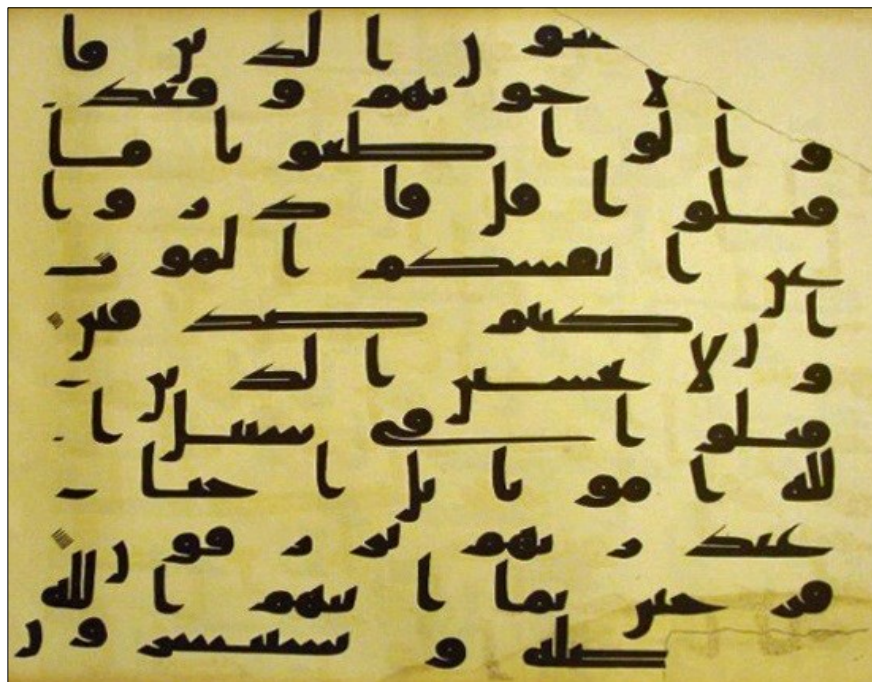 الذين قا
لاخونهم وقعد
وا لو اطعونا ما
قتلوا قل فادر وا
عن انفسكم الموت
ان كنتم صدقين
ولا تحسبن الذين
قتلوا في سبيل ا
لله اموتا بل احيا
عند ربهم يرزقون
فرحين بما اتيهم الله
فضله ويستبشرون